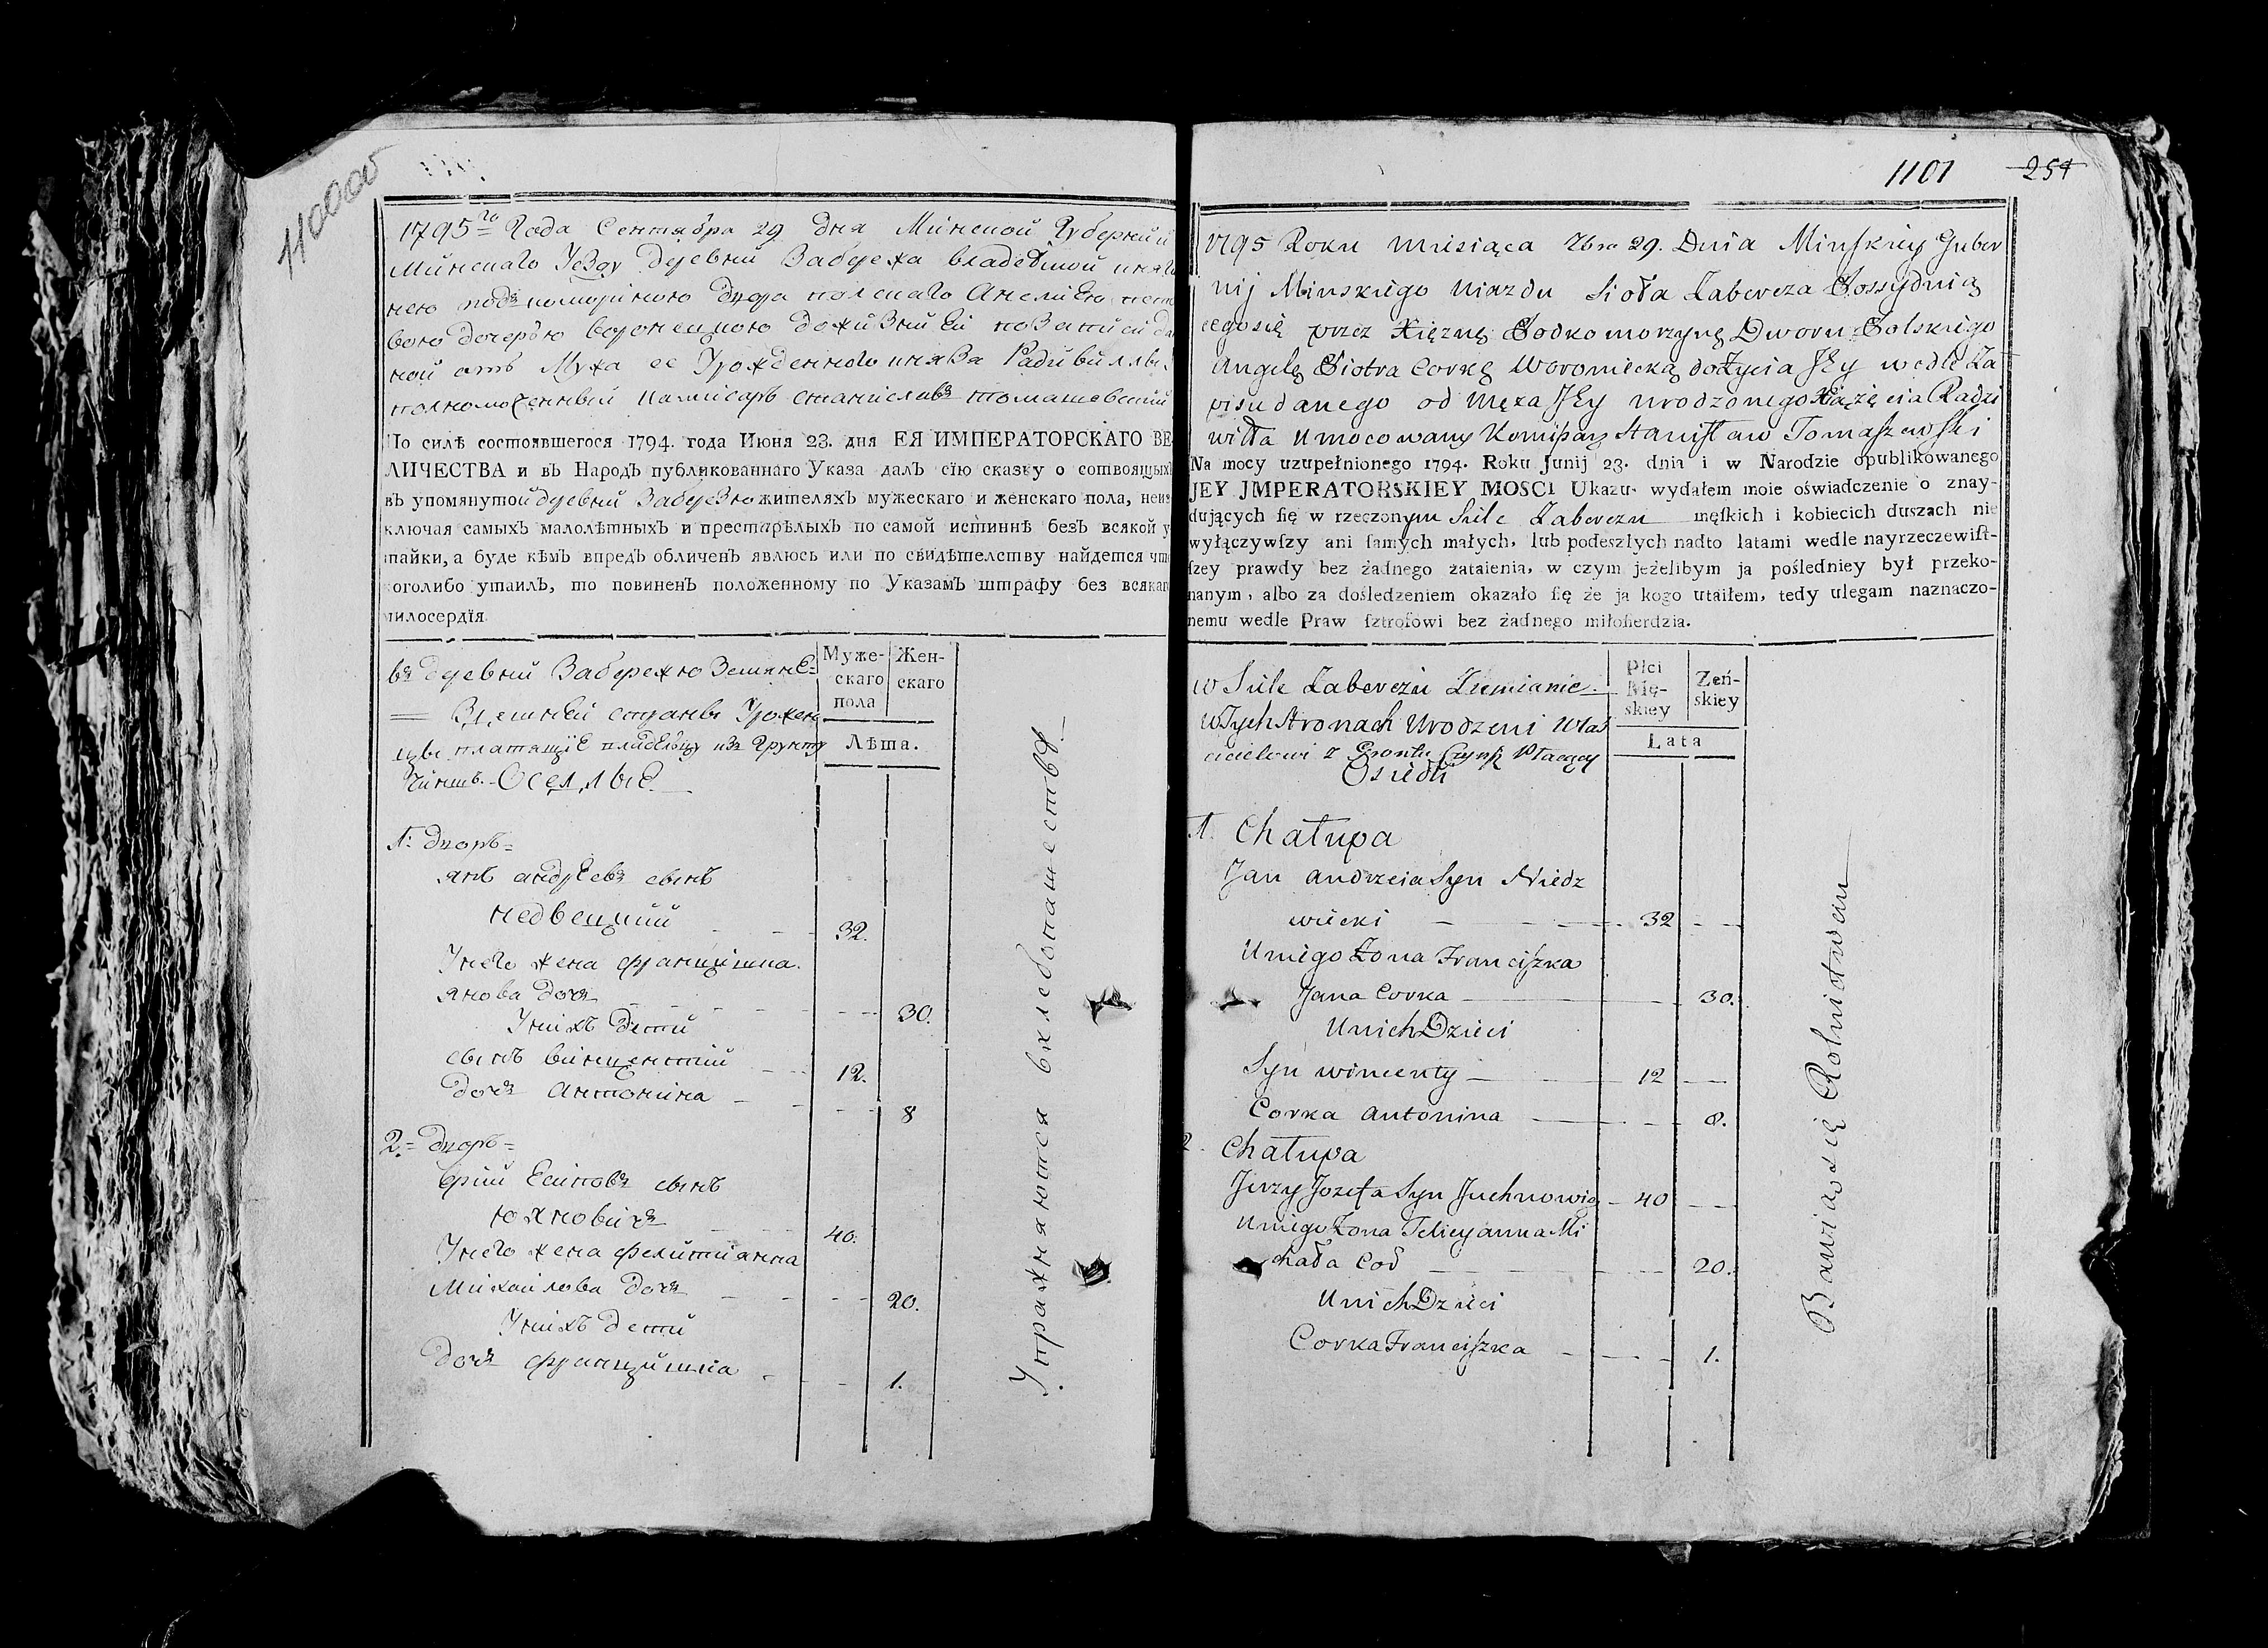 110000
1795го Года Сентября 29 дня Минской Губернии
Минскаго Уезду деревни Забережа владеемой княги
нею подкомориною двора полскаго Анелиею пет
вою дочерью воронецкою дожизни Ей по записи да
ной отъ Мужа ее Урожденного князя Радивилла
полномоченный Камисаръ Станиславъ томашевский
По силѣ состоявшегося 1794. года Июня 23. дня ЕЯ ИМПЕРАТОРСКАГО ВЕ
ЛИЧЕСТВА и въ Народъ публикованнаго Указа далъ сїю сказку о сотвоящыхъ
въ упомянутой деревни Забережю жителяхъ мужескаго и женскаго пола, неиз
ключая самыхъ малолѣтныхъ и престарѣлыхъ по самой истиннѣ безъ всякой у
тайки, а буде кѣмъ впредъ обличенъ явлюсь или по свидѣтелству найдется что
коголибо утаилъ, то повиненъ положенному по Указамъ штрафу без всякаго
милосердїя.
въ деревни Забережю Земяне
Здешней страны Урожен
цы платящие владельцу изъ Грунту
Чиншъ. Оселлые
Муже-
скаго
пола
Жен-
скаго
Лѣта.
1: дворъ
янъ андреевъ сынъ
недвецкий 32.
Унего жена францишка
янова дочь 30.
Унихъ дети
сынъ винцентий 12.
дочь антонина 8
2. дворъ
Ерий Есиповъ сынъ
юхновичъ 40.
Унего жена фелициянна
Михаилова дочь 20.
Унихъ дети
дочь францишка 1.
Упражняются вхлебопашестве
1101 254
1795 Roku Miesiąca 7bra 29. Dnia Minskiey Guber
nij Minskiego Uiazdu Sioła Zabereza Possydnią
cegosię przez Xięznę Podkomorzynę Dworu Polskiego
Angelę Piotra Corkę Woroniecką doŻycia Jey wedle Za
pisu danego od Męża Jey urodzonego Xiążęcia Radzi
wiłła Umocowany Komisarz Stanisław Tomaszewski
Na mocy uzupełnionego 1794. Roku Junij 23. dnia i w Narodzie opublikowanego
JEY JMPERATORSKIEY MOSCI Ukazu. wydałem moie oświadczenie o znay-
dujących się w rzeczonym Siele Zaberezu męſkich i kobiecich duszach nie
wyłączywſzy ani ſamych małych, lub podeszłych nadto latami wedle nayrzeczewiſt-
ſzey prawdy bez żadnego zataienia, w czym jeżelibym ja pośledniey był przeko-
nanym, albo za dośledzeniem okazało ſię że ja kogo utaiłem, tedy ulegam naznaczo-
nemu wedle Praw ſztrofowi bez żadnego miłoſierdzia.
w Siele Zaberezu Ziemianie
w Tych Stronach Urodzeni Włas
cicielowi z Gruntu Czynsz Płacący
Osiedli
Płci
Mę-
skiey
Zeń-
skiey
Lata
1. Chałupa
Jan andrzeia Syn Niedz
wiecki 32
U niego Żona Franciszka
Jana Corka 30.
U nich Dzieci
Syn wincenty 12
Corka antonina 8.
2. Chałupa
Jerzy Jozefa Syn Juchnowicz 40
U niego Żona Felicyanna Mi
chała Cor 20.
U nich Dzieci
Corka Franciszka 1.
Bawiąo się Rolnictwem